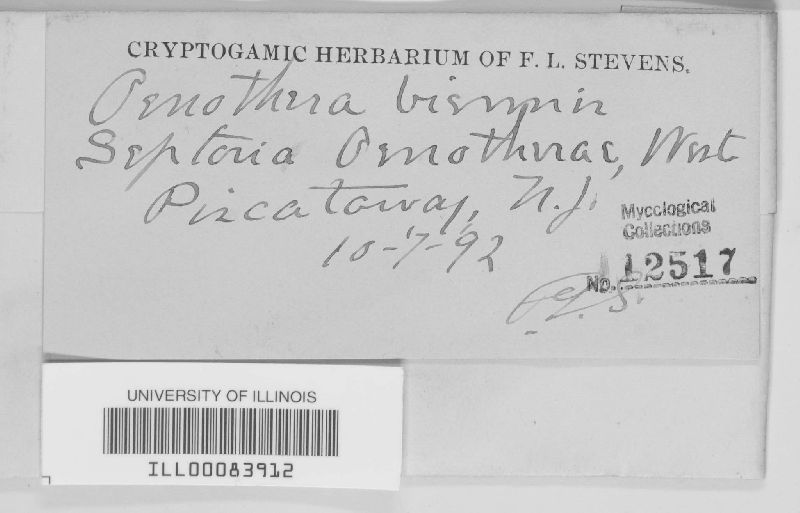 CRYPTOGAMIC HERBARIUM OF F. L. STEVENS.
Oenothera biennis
Septoria Oenotherae, West
Piscataway, N.J.
10-7-92
Mycological
Collections
No. 12517
F.L.S.
UNIVERSITY OF ILLINOIS
ILL00083912